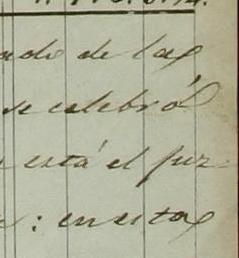 ado de las
se celebró
está el juz
: en esta